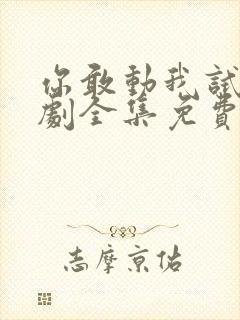 你敢動我試
劇全集免費
志摩京佑